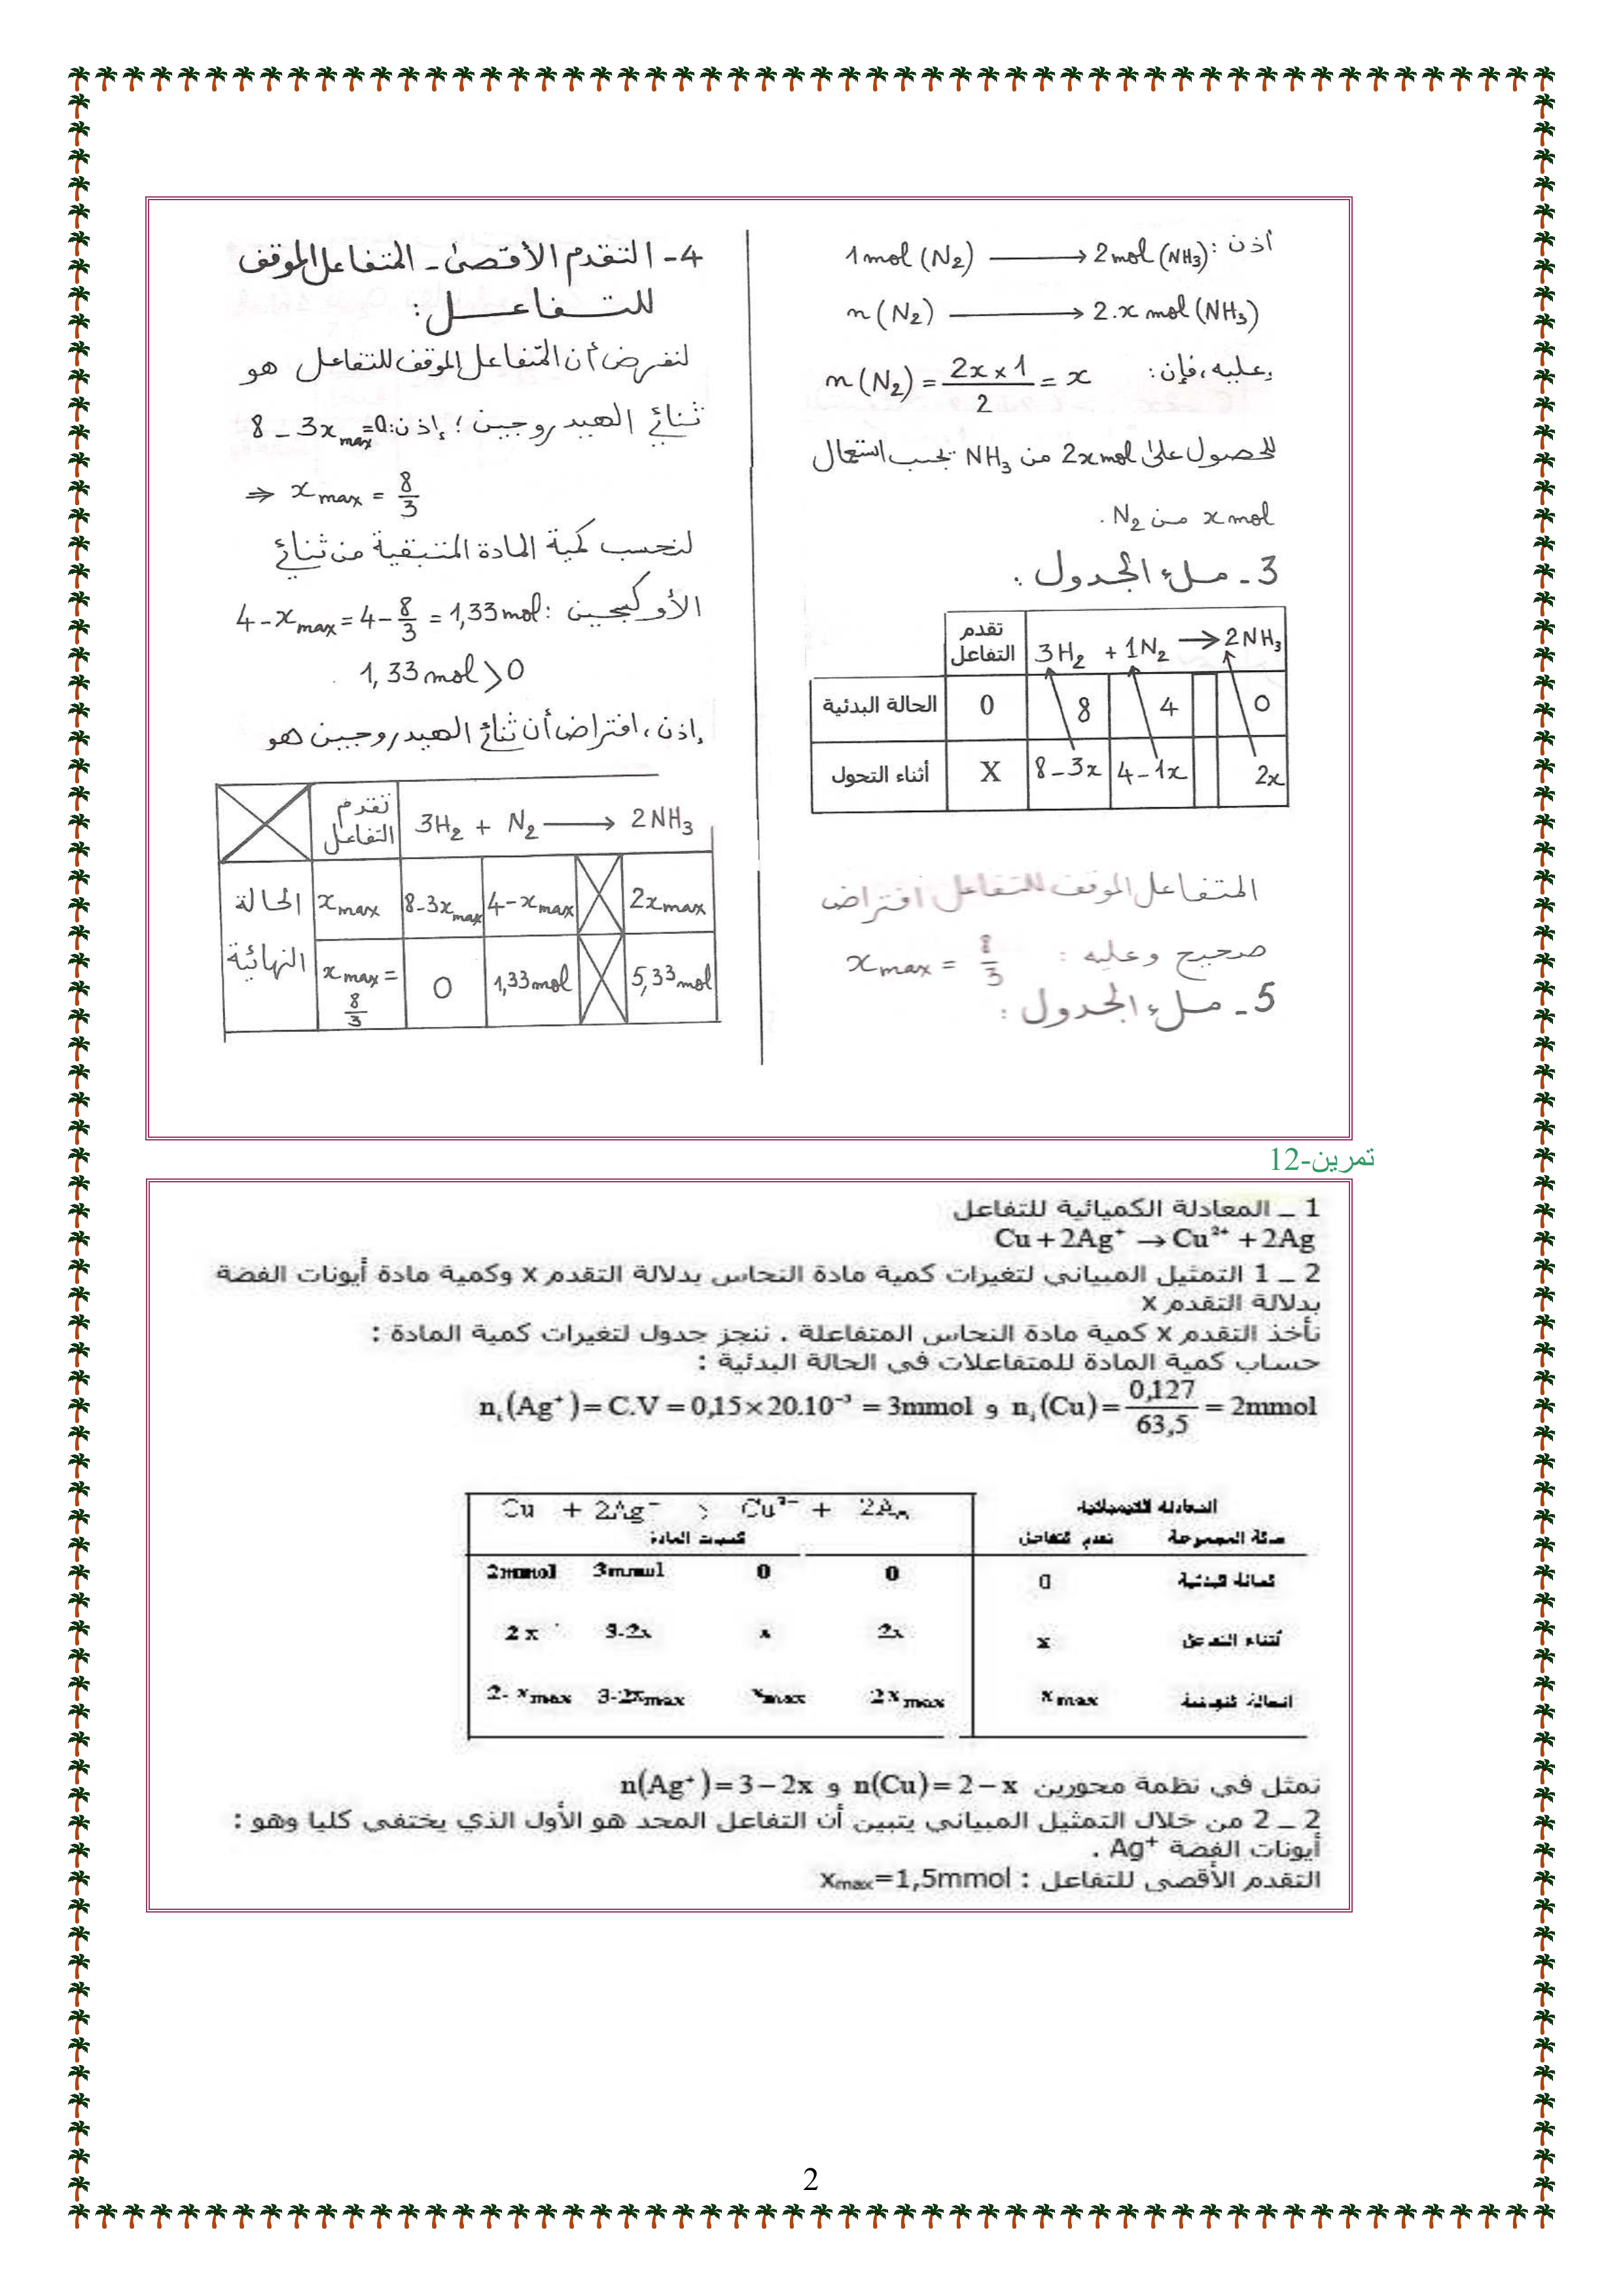 أذن: 1mol (N₂) ⟶ 2mol (NH₃)
n(N₂) ⟶ 2.x mol (NH₃)
وعليه، فإن: n(N₂) = (2x × 1)/2 = x
للحصول على 2x mol من NH₃ يجب استعمال
x mol من N₂.
3 - ملء الجدول :
تقدم التفاعل | 3H₂ + 1N₂ → 2NH₃
الحالة البدئية | 0 | 8 | 4 | 0
أثناء التحول | X | 8-3x | 4-1x | 2x
4 - التقدم الأقصى - المتفاعل الموقف
للتفاعل :
لنفرض أن المتفاعل الموقف للتفاعل هو
ثنائي الهيدروجين ؛ إذن: 8 - 3x max = 0
⇒ x max = 8/3
لنحسب كمية المادة المتبقية من ثنائي
الأوكسجين : 4 - x max = 4 - 8/3 = 1,33 mol
1,33 mol > 0
إذن، افتراض أن ثنائي الهيدروجين هو
المتفاعل الموقف للتفاعل افتراض
صحيح وعليه : x max = 8/3
5 - ملء الجدول :
تقدم التفاعل | 3H₂ + N₂ ⟶ 2NH₃
الحالة النهائية | x max | 8-3x max | 4-x max | 2x max
x max = 8/3 | 0 | 1,33 mol | 5,33 mol
تمرين-12
1 _ المعادلة الكميائية للتفاعل
Cu + 2Ag⁺ → Cu²⁺ + 2Ag
2 _ 1 التمثيل المبياني لتغيرات كمية مادة النحاس بدلالة التقدم x وكمية مادة أيونات الفضة
بدلالة التقدم x
نأخذ التقدم x كمية مادة النحاس المتفاعلة . ننجز جدول لتغيرات كمية المادة :
حساب كمية المادة للمتفاعلات في الحالة البدئية :
nᵢ(Cu) = 0,127/63,5 = 2mmol و nᵢ(Ag⁺) = C.V = 0,15×20.10⁻³ = 3mmol
المعادلة الكيميائية | Cu + 2Ag⁺ Cu²⁺ +
حالة المجموعة | تقدم التفاعل | كميات المادة
الحالة البدئية | 0 | 2mmol | 3mmol | 0 | 0
أثناء التفاعل | x | 2 x | 3-2x | x | 2x
الحالة النهائية | x max | 2- x max | 3-2x max | x max | 2x max
نمثل في نظمة محورين n(Cu) = 2 − x و n(Ag⁺) = 3 − 2x
2 _ 2 من خلال التمثيل المبياني يتبين أن التفاعل المحد هو الأول الذي يختفي كليا وهو :
أيونات الفضة Ag⁺ .
التقدم الأقصى للتفاعل : x max=1,5mmol
2